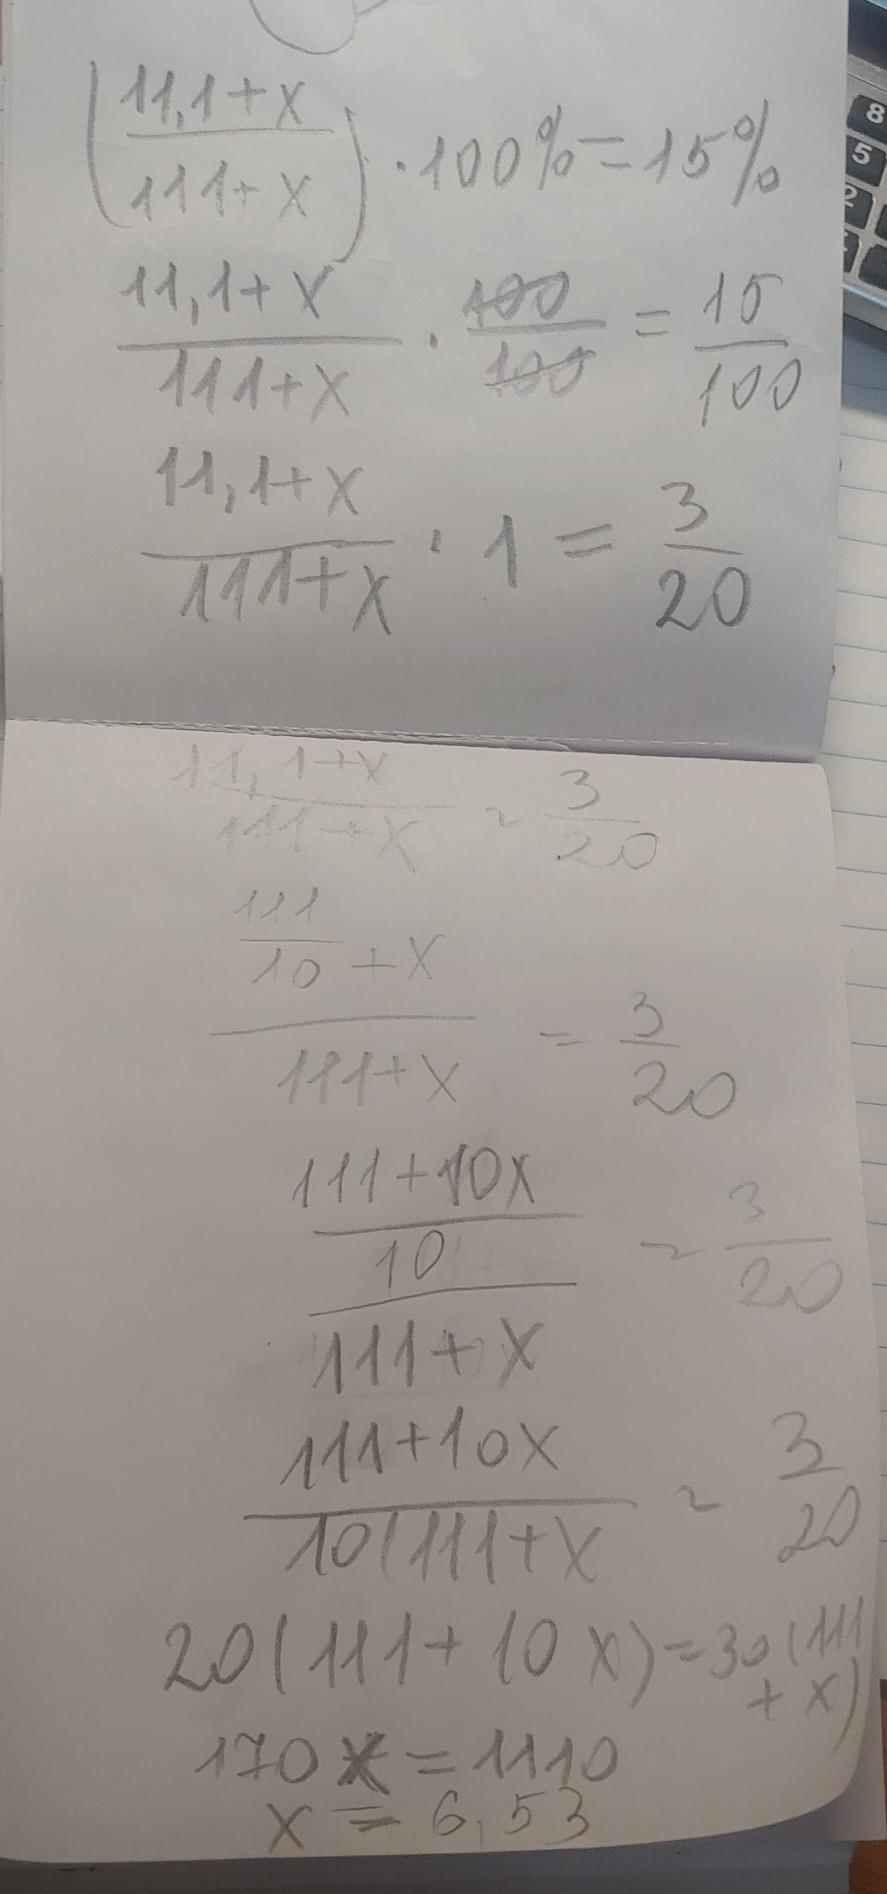 (11,1+x / 111+x) · 100% = 15%
11,1+x / 111+x · 100 / 100 = 15 / 100
11,1+x / 111+x · 1 = 3 / 20
11,1+x / 111+x = 3 / 20
111 / 10 + x / 111+x = 3 / 20
111+10x / 10 / 111+x = 3 / 20
111+10x / 10(111+x = 3 / 20
20(111+10x)=30(111
+x)
170x=1110
x=6,53
8
5
2